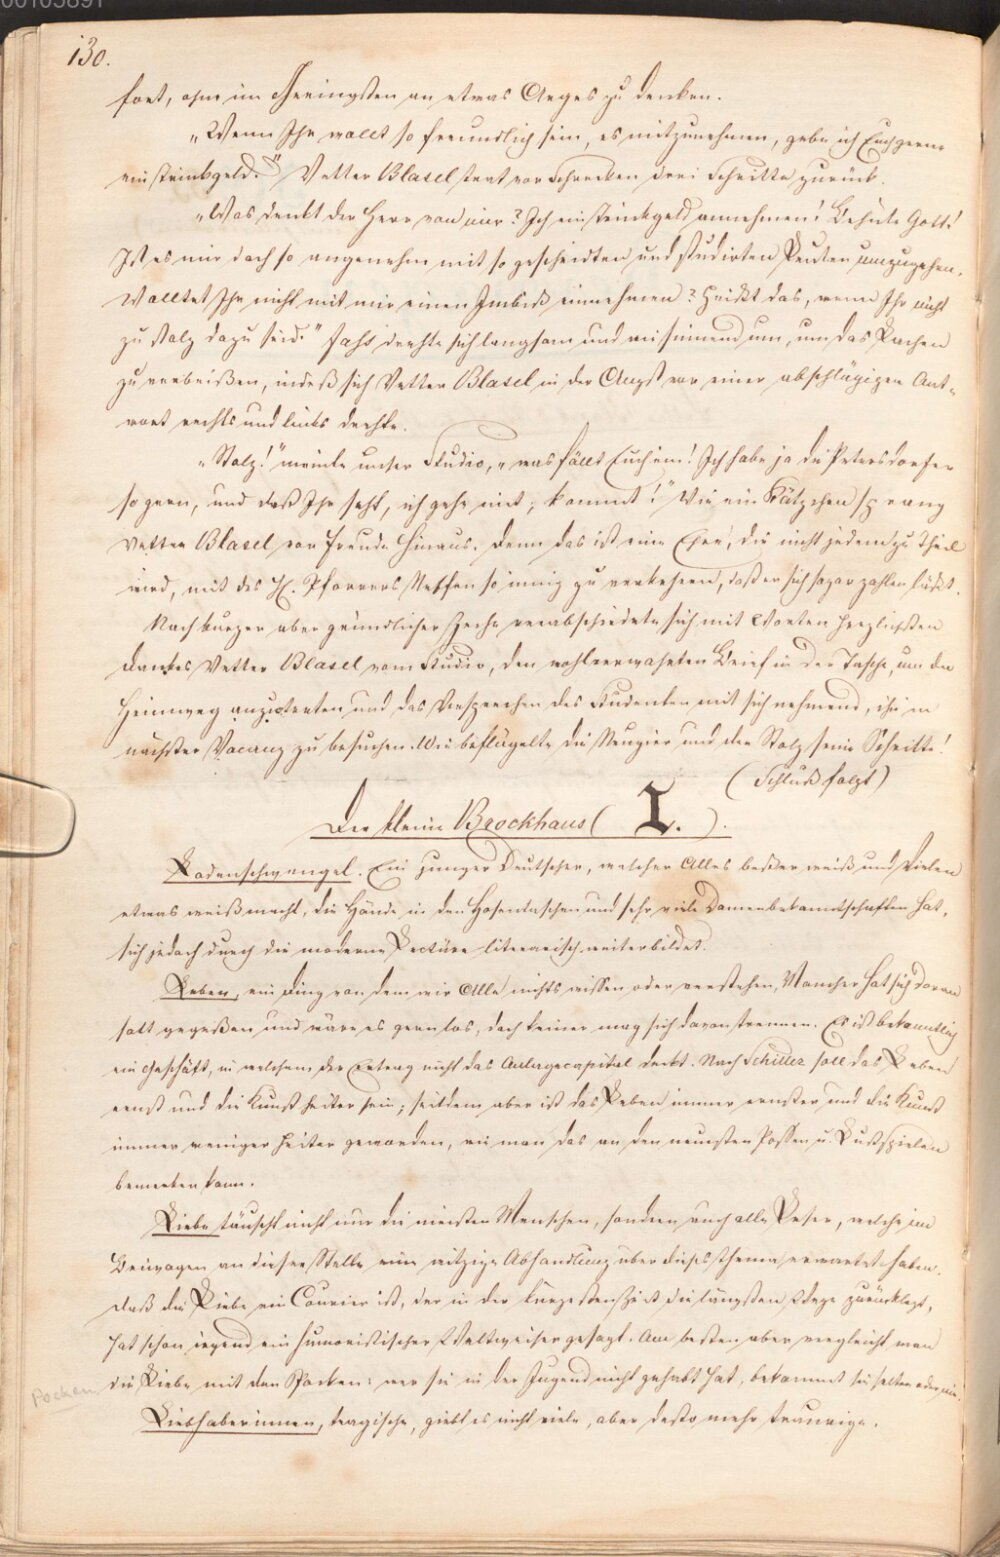 00105891
130.
fort, ohne im Geringsten an etwas Arges zu denken.
„Wenn Ihr wollt so freundlich sein, es mitzunehmen, gebe ich Euch gerne
ein Trinkgeld.“ Vetter Blasel trat vor Schrecken drei Schritte zurück.
„Was denkt der Herr von mir? Ich ein Trinkgeld annehmen! Behüte Gott!
Ist es mir doch so angenehm mit so gescheidten und studirten Leuten umzugehen.
Wolltet Ihr nicht mit mir einen Imbiß einnehmen? Heißt das, wenn Ihr nicht
zu stolz dazu seid.“ drehte sich langsam und um, um das Lachen
zu verbeißen, indeß sich Vetter Blasel in der Angst vor einer abschlägigen Ant-
wort rechts und links drehte.
„Stolz!“ meinte unser Studio, „was fällt Euch ein! Ich habe ja die Petersdorfer
so gern, und daß Ihr seht, ich gehe mit; kommt!“ Wie ein Kätzchen sprang
Vetter Blasel vor Freude hinaus. Denn das ist eine Ehre, die nicht jedem zu Theil
wird, mit des H. Pfarrers Neffen so innig zu verkehren, daß er sich sogar zahlen läßt.
Nach kurzer aber gründlicher Zeche verabschiedete sich mit Worten herzlichsten
Dankes Vetter Blasel vom Studio, den wohlverwahrten Brief in der Tasche, um den
Heimweg anzutreten und das Versprechen des Studenten mit sich nehmend, ihn in
nächster Vacanz zu besuchen. Wie beflügelte die Neugier und der Stolz seine Schritte!
(Schluß folgt)
Der kleine Brockhaus (L.).
Ladenschwengel. Ein junger Deutscher, welcher Alles besser weiß und Vielen
etwas weiß macht, die Hände in den Hosentaschen und sehr viele Damenbekanntschaften hat,
sich jedoch durch die moderne Lectüre literarisch weiterbildet.
Leben, ein Ding von dem wir Alle nichts wissen oder verstehen, Mancher hat sich daran
satt gegessen und wäre es gern los, doch keiner mag sich davon trennen. Es ist bekanntlich
ein Geschäft, in welchem der Ertrag nicht das Anlagecapital deckt. Nach Schiller soll das Leben
ernst und die Kunst heiter sein; seitdem aber ist das Leben immer ernster und die Kunst
immer weniger heiter geworden, wie man das an den neuesten Possen u. Lustspielen
bemerken kann.
Liebe täuscht nicht nur die meisten Menschen, sondern auch alle Leser, welche im
an dieser Stelle eine witzige Abhandlung über dieses Thema erwartet haben.
Daß die Liebe ein Courier ist, der in der kürzesten Zeit die längsten Wege zurücklegt,
hat schon irgend ein humoristischer Weltweiser gesagt. Am besten aber vergleicht man
die Liebe mit den Pocken: wer sie in der Jugend nicht gehabt hat, bekommt sie selten oder nie.
Pocken
Liebhaberinnen, tragische, giebt es nicht viele, aber desto mehr traurige.